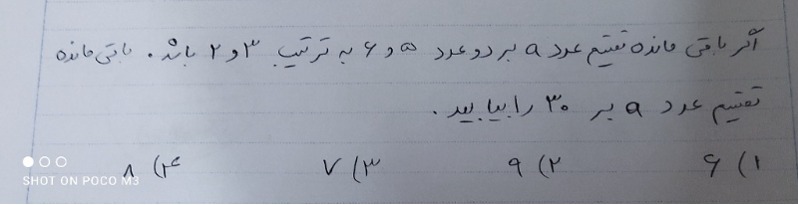 اگر باقی مانده تقسیم عدد a بر دو عدد ۵ و ۶ به ترتیب ۳ و ۲ باشد. باقی مانده
تقسیم عدد a بر ۳۰ را بیابید.
۱) ۶ ۲) ۹ ۳) ۷ ۴) ۸
SHOT ON POCO M3